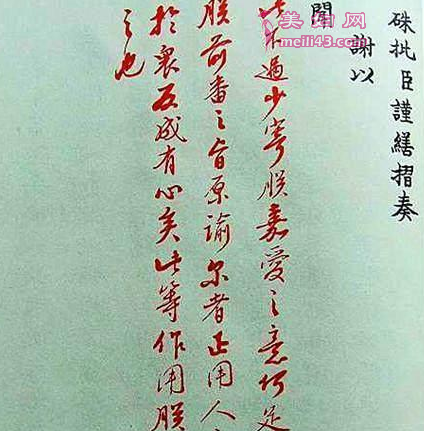 硃批臣謹繕摺奏
謝以
聞
此不過少寄朕嘉愛之意何足
朕前番之旨原諭尔者正用人
於衆反成有心矣此等作用朕
之也
美妇网
meili43.com